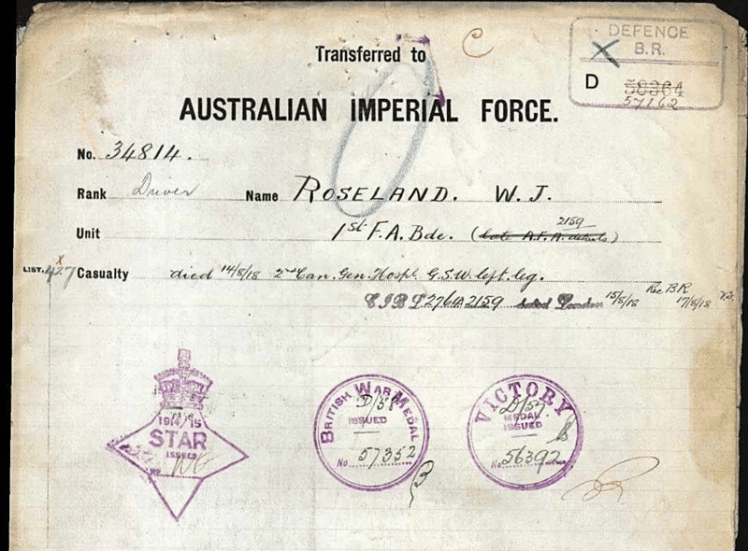 Transferred to
C
DEFENCE
B.R.
X
D 58364
57162
AUSTRALIAN IMPERIAL FORCE.
No. 34814.
Rank Driver Name ROSELAND. W. J.
2159
Unit 1st F.A. Bde. (late A.F.A. details)
LIST. 427 x Casualty died 14/8/18 2nd Can. Gen. Hospl. G.S.W. left leg.
2761A 2159 London 15/8/18 Rec BR 17/8/18
1914/15
STAR
ISSUED
No NE
BRITISH WAR MEDAL
D/58
ISSUED
No 57352
VICTORY
D/57
MEDAL
ISSUED
No. 56392